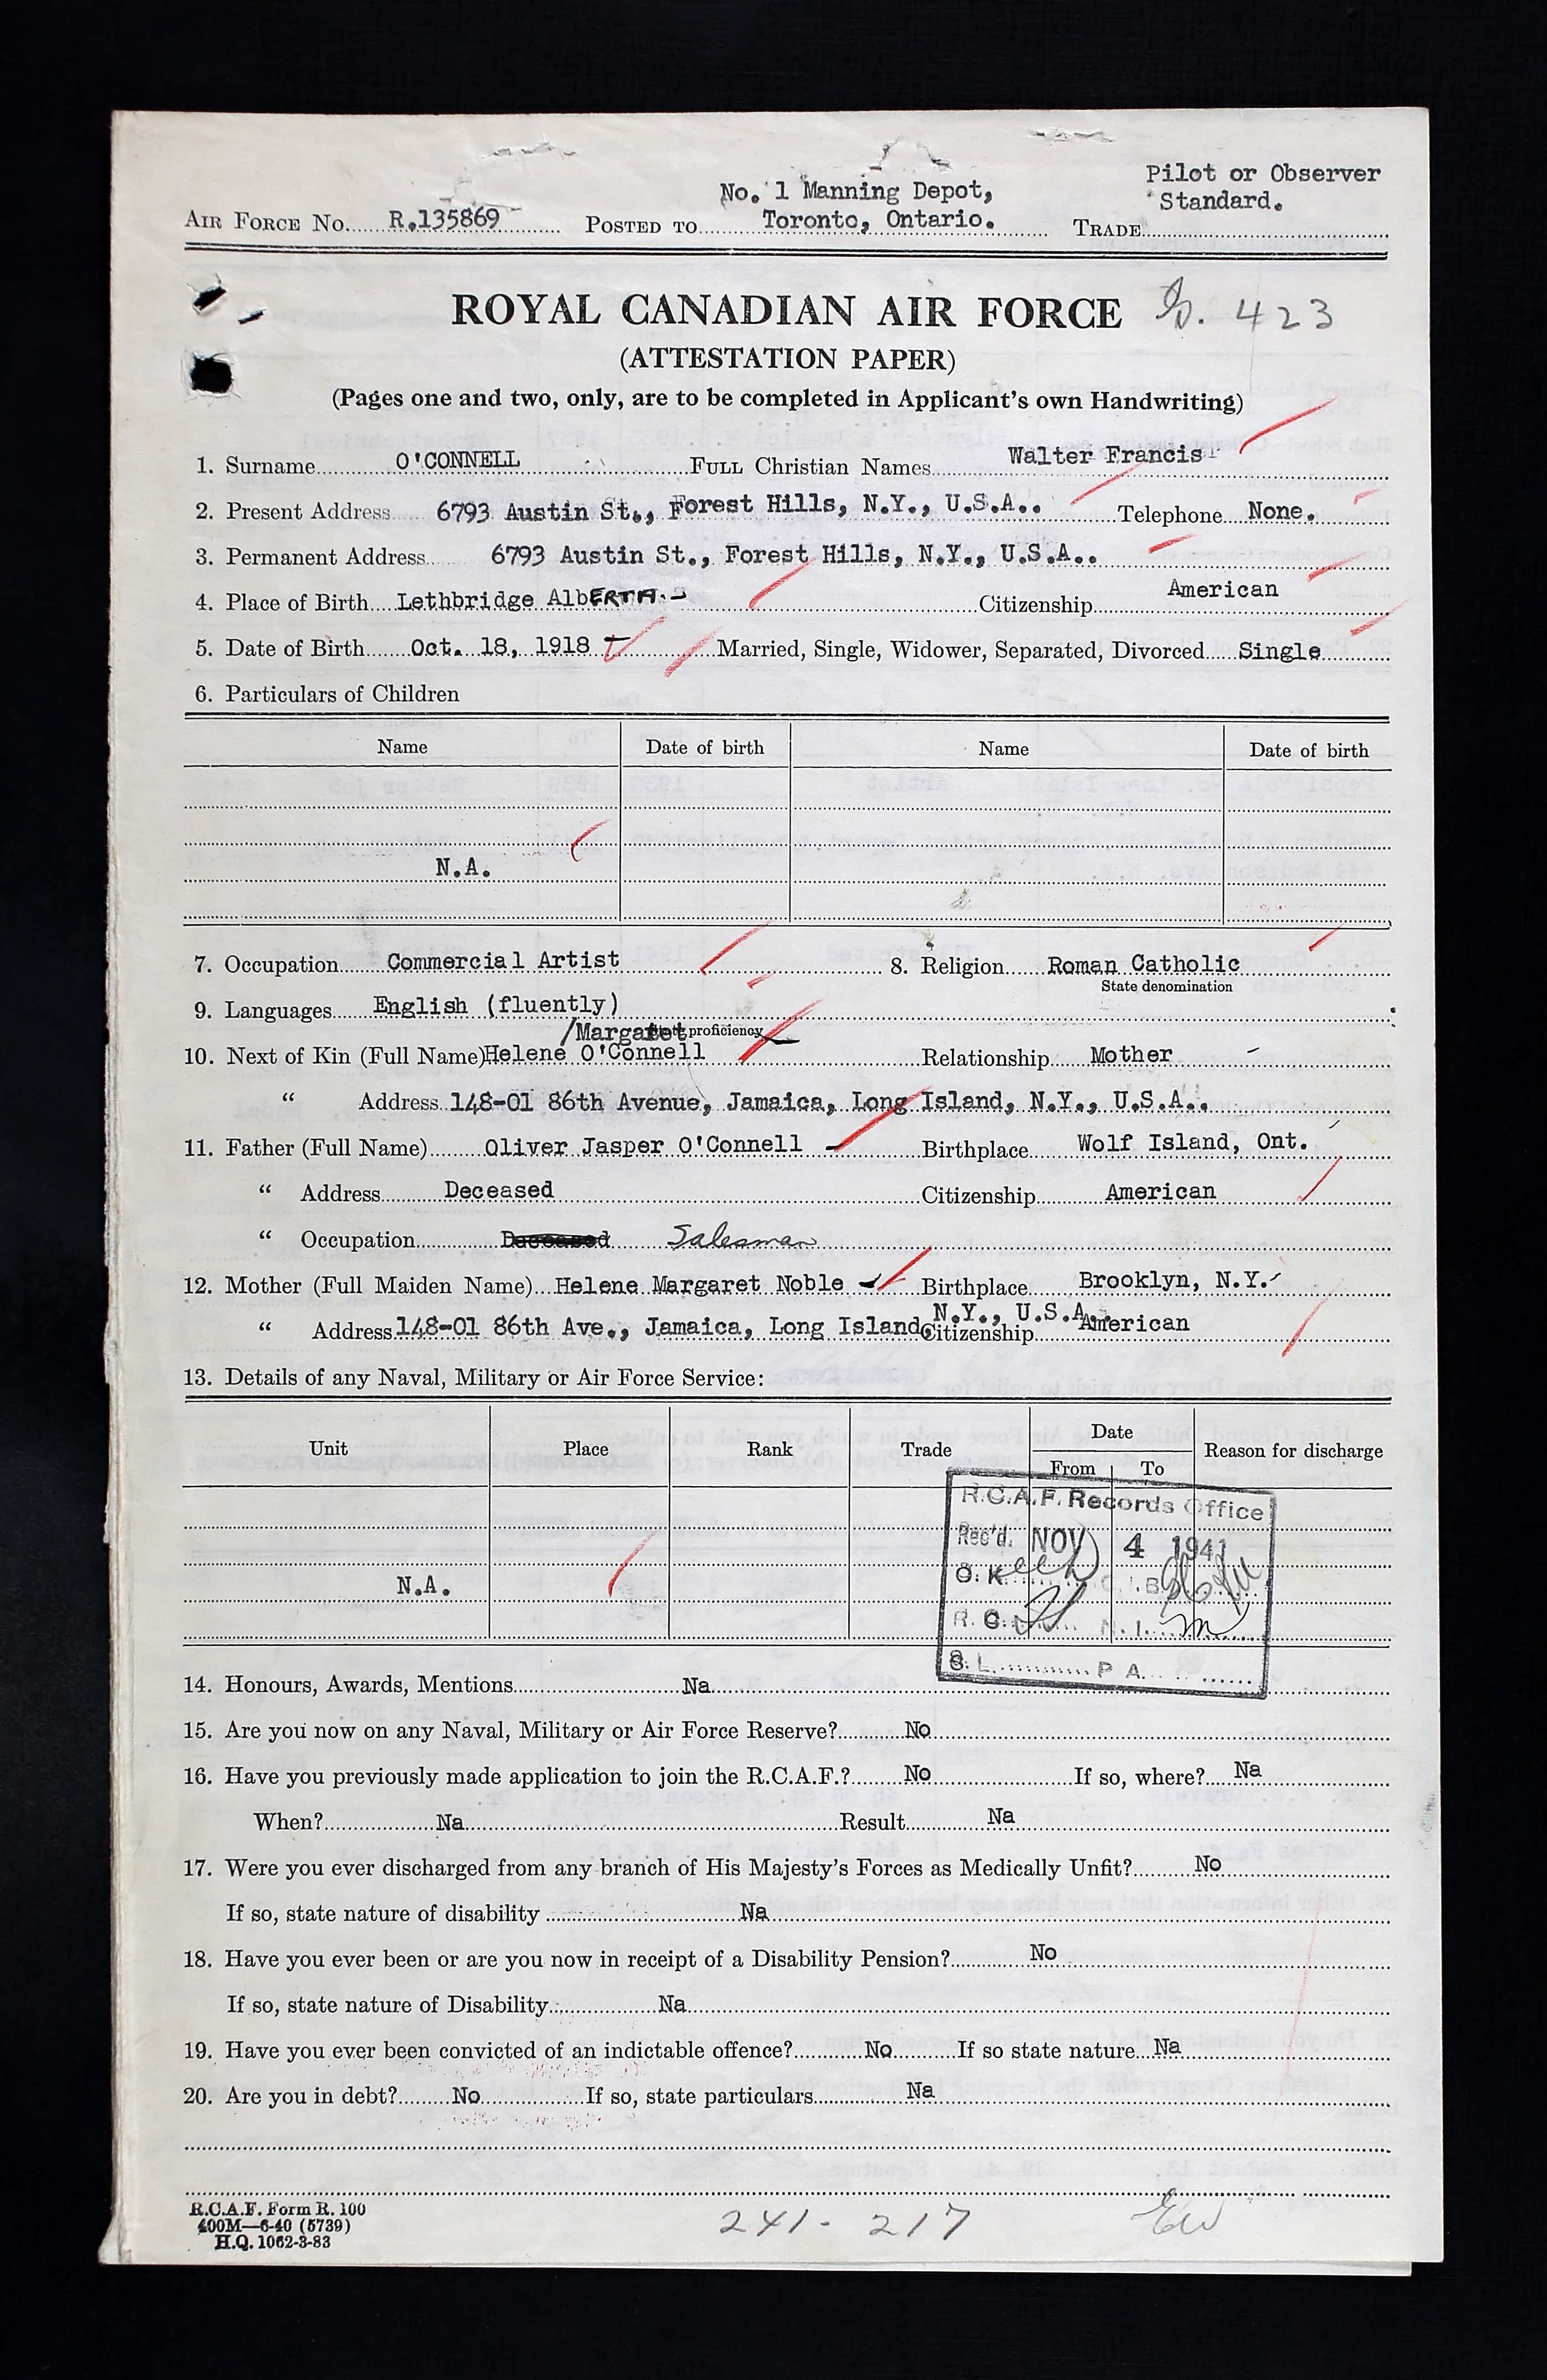 Pilot or Observer
No. 1 Manning Depot, Standard.
AIR FORCE NO. R.135869 POSTED TO Toronto, Ontario. TRADE
ROYAL CANADIAN AIR FORCE 423
(ATTESTATION PAPER)
(Pages one and two, only, are to be completed in Applicant's own Handwriting)
1. Surname O'CONNELL FULL Christian Names Walter Francis
2. Present Address 6793 Austin St., Forest Hills, N.Y., U.S.A.. Telephone None.
3. Permanent Address 6793 Austin St., Forest Hills, N.Y., U.S.A..
4. Place of Birth Lethbridge AlbERTA. Citizenship American
5. Date of Birth Oct. 18, 1918 Married, Single, Widower, Separated, Divorced Single
6. Particulars of Children
Name Date of birth Name Date of birth
N.A.
7. Occupation Commercial Artist 8. Religion Roman Catholic
State denomination
9. Languages English (fluently)
/Margaret State proficiency
10. Next of Kin (Full Name) Helene O'Connell Relationship Mother
" Address 148-01 86th Avenue, Jamaica, Long Island, N.Y., U.S.A..
11. Father (Full Name) Oliver Jasper O'Connell Birthplace Wolf Island, Ont.
" Address Deceased Citizenship American
" Occupation Deceased Salesman
12. Mother (Full Maiden Name) Helene Margaret Noble Birthplace Brooklyn, N.Y.
N.Y., U.S.A.
" Address 148-01 86th Ave., Jamaica, Long Island, Citizenship American
13. Details of any Naval, Military or Air Force Service:
Unit Place Rank Trade Date Reason for discharge
From To
R.C.A.F. Records Office
Rec'd. NOV 4 1941
N.A.
O.K. C.I.B.
R.C. N.I.
S.L. P.A.
14. Honours, Awards, Mentions Na
15. Are you now on any Naval, Military or Air Force Reserve? No
16. Have you previously made application to join the R.C.A.F.? No If so, where? Na
When? Na Result Na
17. Were you ever discharged from any branch of His Majesty's Forces as Medically Unfit? No
If so, state nature of disability Na
18. Have you ever been or are you now in receipt of a Disability Pension? No
If so, state nature of Disability Na
19. Have you ever been convicted of an indictable offence? No If so state nature Na
20. Are you in debt? No If so, state particulars Na
R.C.A.F. Form R. 100
400M—6-40 (5739)
H.Q. 1062-3-83
241-217